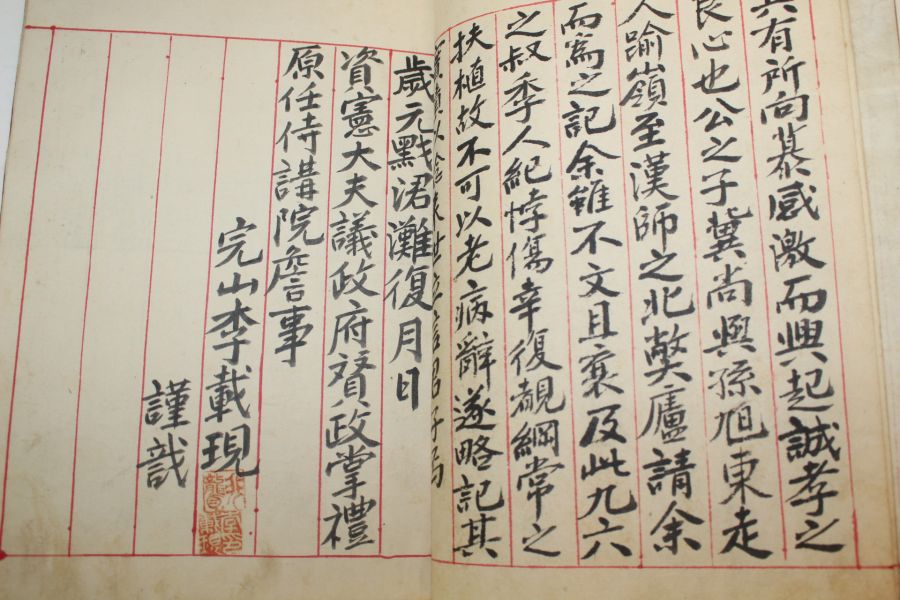 有所向慕感激而興起誠孝之
良心也公之子冀尚與孫旭東走
人踰嶺至漢師之北獘廬請余
而爲之記余雖不文且衰及此九六
之叔季人紀悖傷幸復覩綱常之
扶植故不可以老病辭遂略記其
君子焉
歲元黓涒灘復月日
資憲大夫議政府贊政掌禮
原任侍講院詹事
完山李載現
謹識